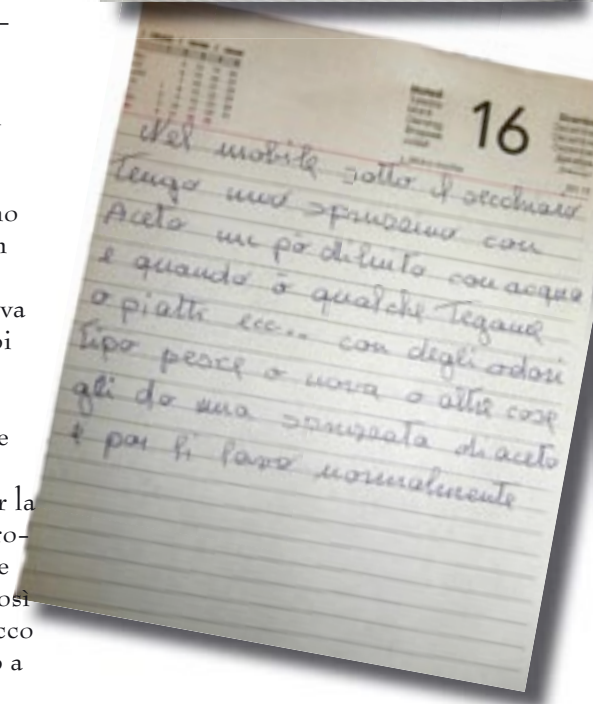 16
Nel mobile sotto il secchiaio
Tengo uno spruzzino con
Aceto un pò diluito con acqua
e quando ò qualche Tegame
o piatti ecc... con degli odori
Tipo pesce o uova o altre cose
gli do una spruzzata di aceto
e poi li lavo normalmente
no
va
e
r la
ro-
e
osì
cco
o a